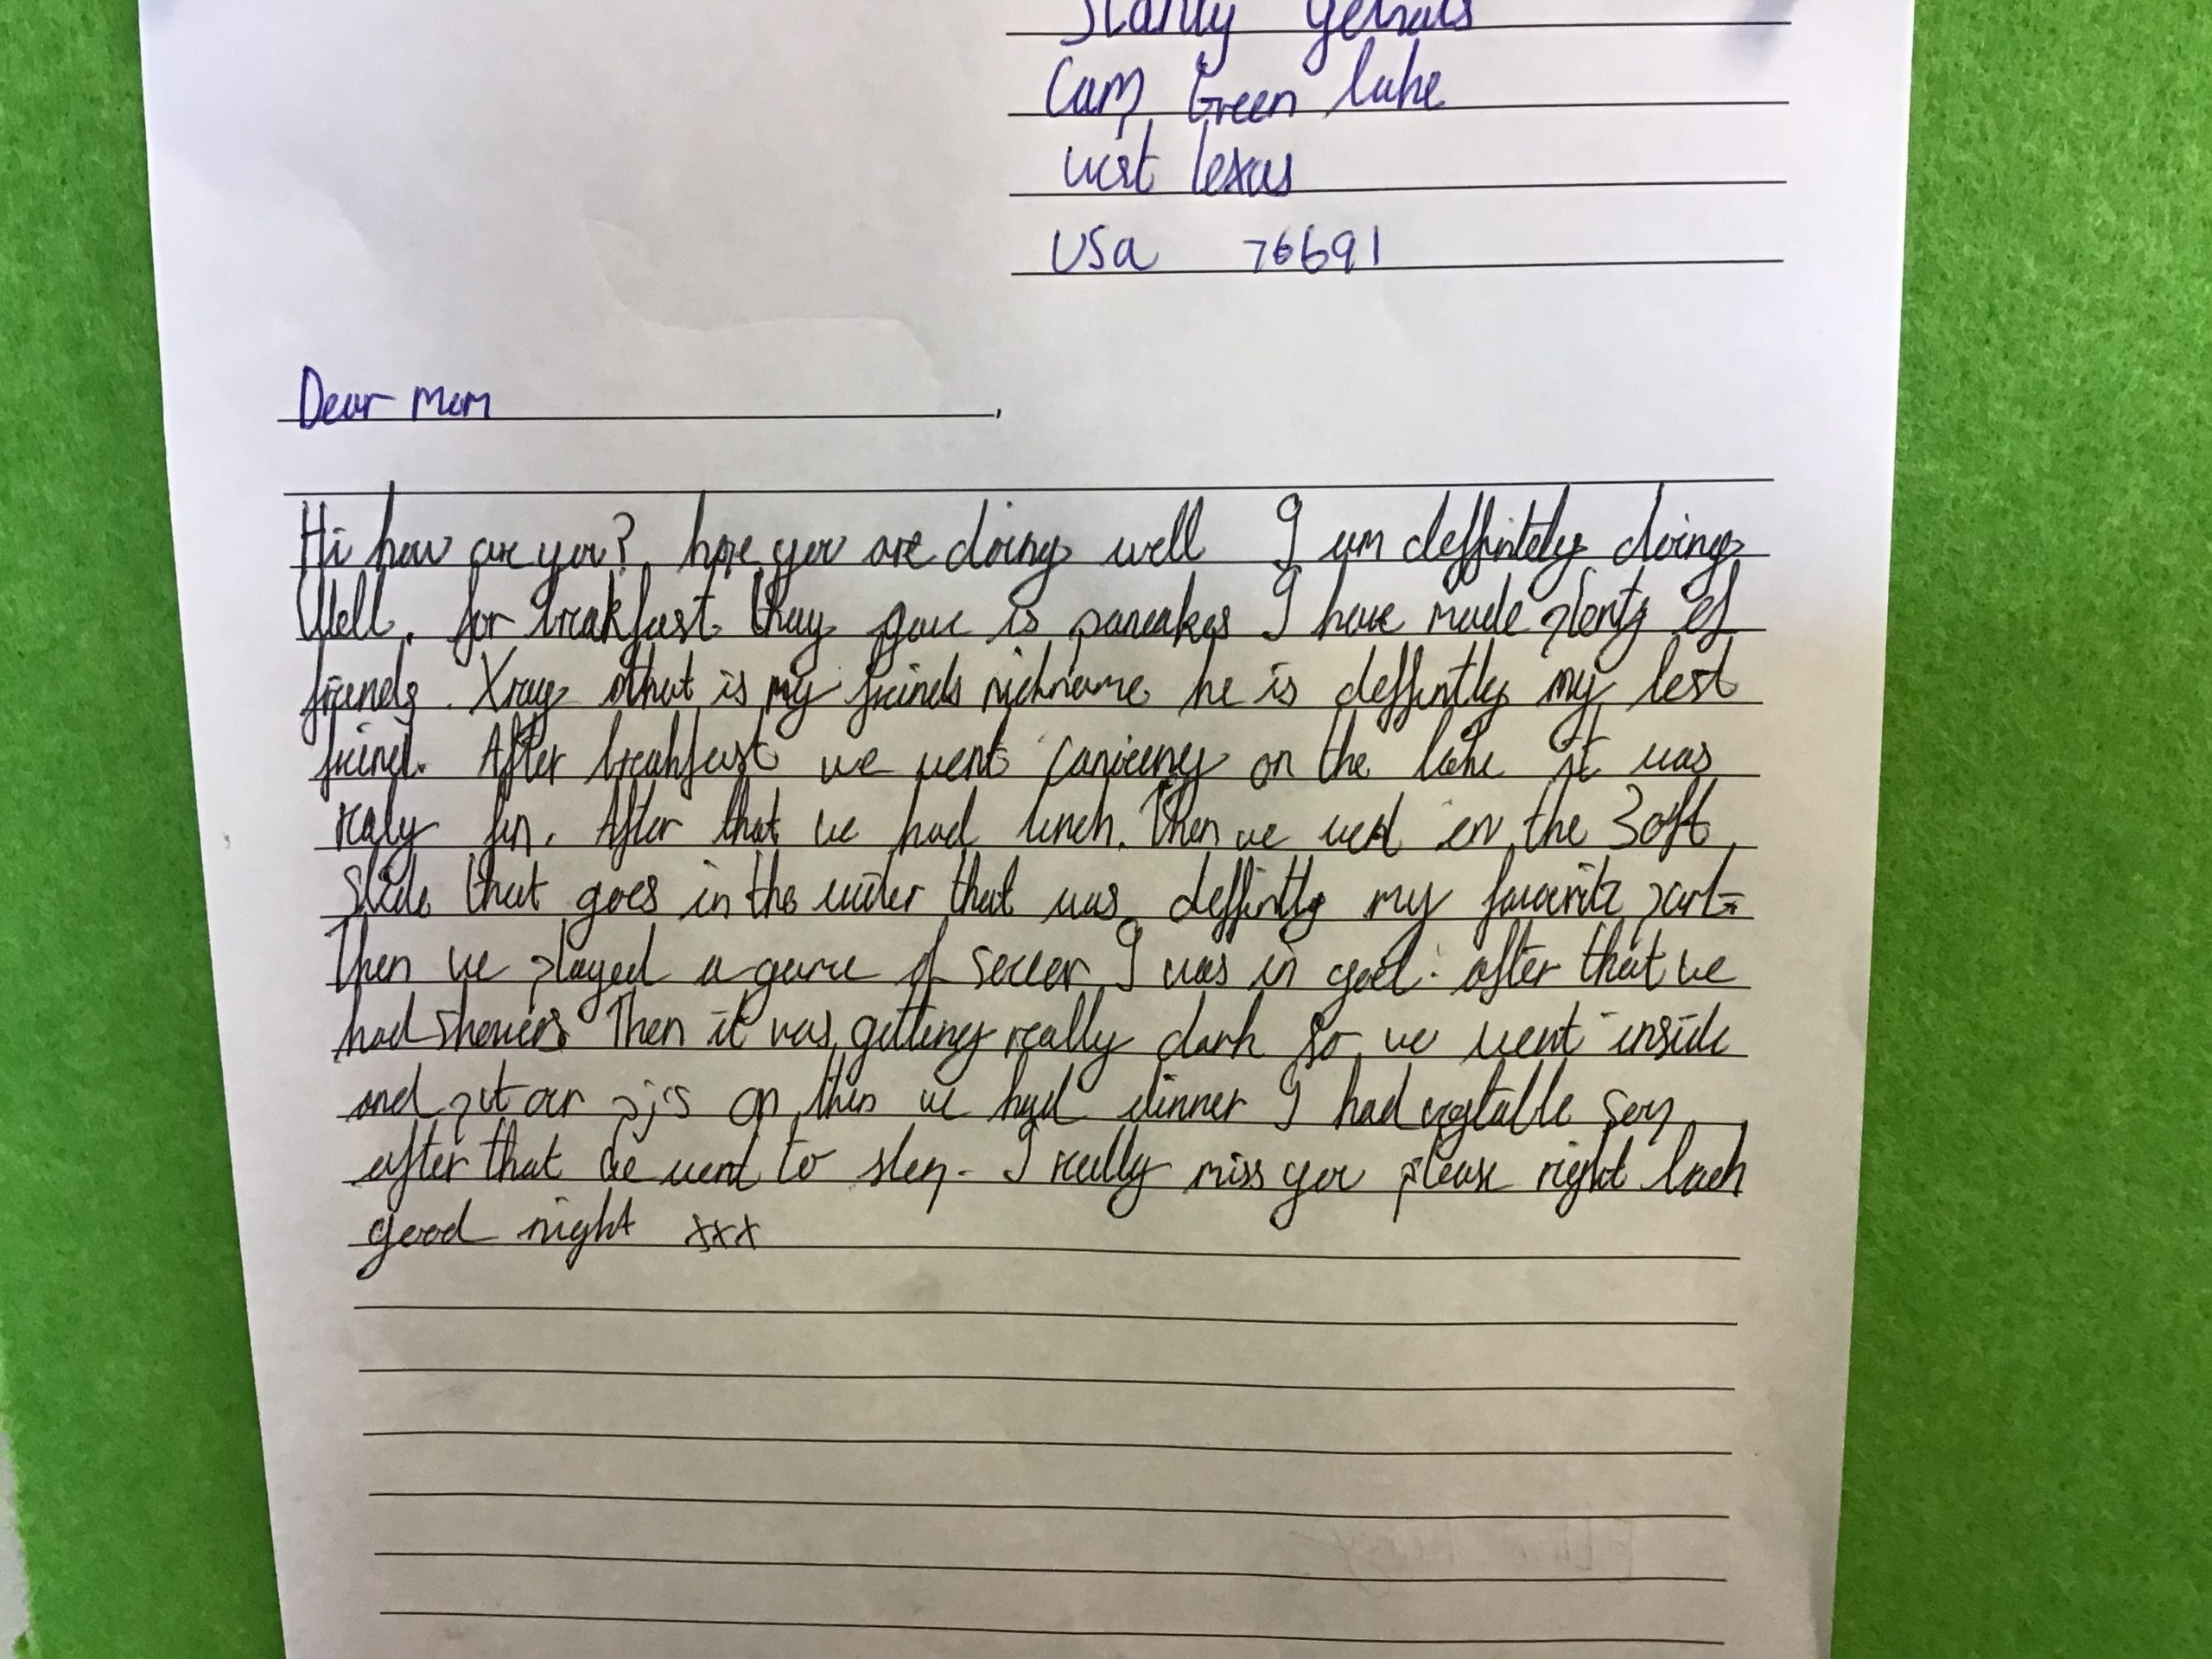 Stanly yelnats
Camp Green lake
west Texas
USa 76691
Dear mom ,
Hi how are you? hope you are doing well I am deffinitely doing
Well. for breakfast thay gave is pancakes I have made plenty of
friends. Xray that is my freinds nickname he is deffintly my best
freind. After breakfast we went canoeeing on the lake it was
realy fun. After that we had lunch. Then we went on the 30ft
Slide that goes in the water that was deffintly my favorite part
Then we played a game of soccer I was in goal. after that we
had showers Then it was getting really dark so we went inside
and put our pjs on then we had dinner I had vegtable soup
after that we went to sleep. I really miss you please right back
good night xxx